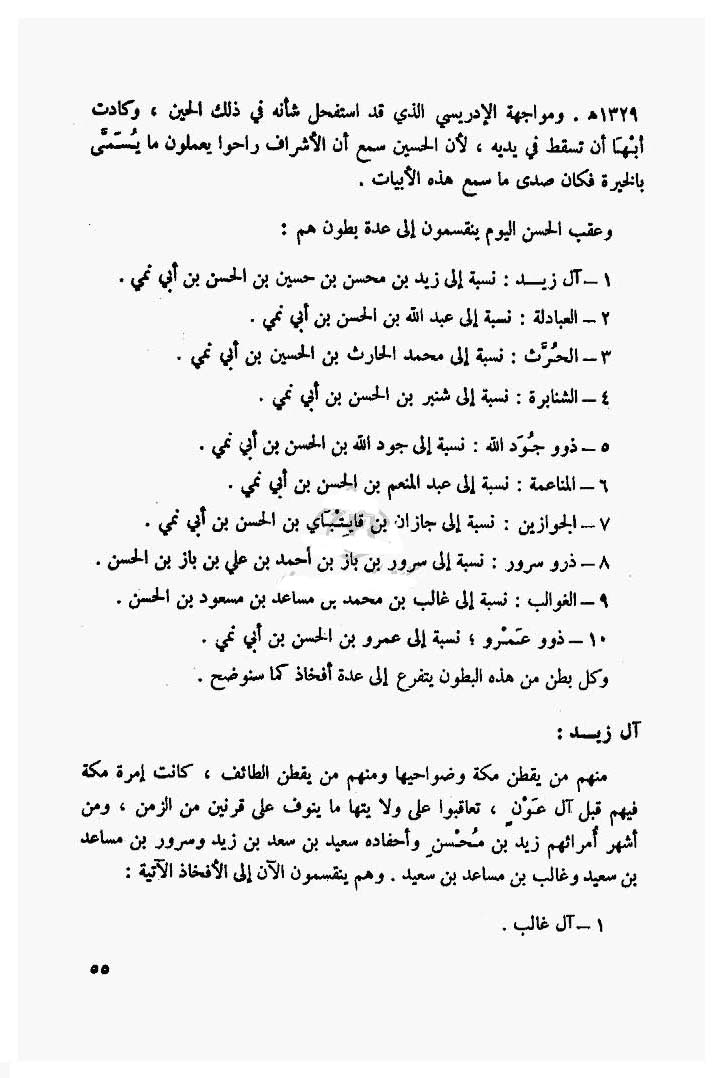 ١٣٢٩ه . ومواجهة الإدريسي الذي قد استفحل شأنه في ذلك الحين ، وكادت
أبْهَا أن تسقط في يديه ، لأن الحسين سمع أن الأشراف راحوا يعملون ما يُسَمَّى
بالخيرة فكان صدى ما سمع هذه الأبيات .
وعقب الحسن اليوم ينقسمون إلى عدة بطون هم :
١ – آل زيــد : نسبة إلى زيد بن محسن بن حسين بن الحسن بن أبي نمي .
٢ – العبادلة : نسبة إلى عبد الله بن الحسن بن أبي نمي .
٣ – الحُرَّث : نسبة إلى محمد الحارث بن الحسين بن أبي نمي .
٤ – الشنابرة : نسبة إلى شنبر بن الحسن بن أبي نمي .
٥ – ذوو جُوَد الله : نسبة إلى جود الله بن الحسن بن أبي نمي .
٦ – المناعمة : نسبة إلى عبد المنعم بن الحسن بن أبي نمي .
٧ – الجوازين : نسبة إلى جازان بن قايِتْبَاي بن الحسن بن أبي نمي .
٨ – ذرو سرور : نسبة إلى سرور بن باز بن أحمد بن علي بن باز بن الحسن .
٩ – الغوالب : نسبة إلى غالب بن محمد بن مساعد بن مسعود بن الحسن .
١٠ – ذوو عَمْرو ؛ نسبة إلى عمرو بن الحسن بن أبي نمي .
وكل بطن من هذه البطون يتفرع إلى عدة أفخاذ كما سنوضح .
آل زيــد :
منهم من يقطن مكة وضواحيها ومنهم من يقطن الطائف ، كانت إمرة مكة
فيهم قبل آل عَوْنٍ ، تعاقبوا على ولا يتها ما ينوف على قرنين من الزمن ، ومن
أشهر أُمرائهم زيد بن مُحْسنٍ وأحفاده سعيد بن سعد بن زيد وسرور بن مساعد
بن سعيد وغالب بن مساعد بن سعيد . وهم ينقسمون الآن إلى الأفخاذ الآتية :
١ – آل غالب .
٥٥